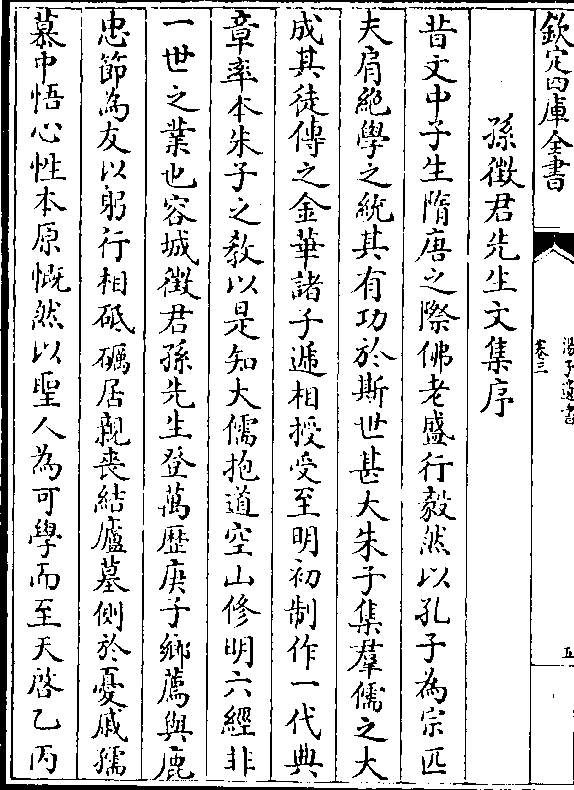 欽定四庫全書
湯子遺書
卷三
五
孫徵君先生文集序
昔文中子生隋唐之際佛老盛行毅然以孔子為宗匹
夫肩絶學之統其有功於斯世甚大朱子集羣儒之大
成其徒傳之金華諸子遞相授受至明初制作一代典
章率本朱子之教以是知大儒抱道空山修明六經非
一世之業也容城徵君孫先生登萬歷庚子鄉薦與鹿
忠節為友以躬行相砥礪居親喪結廬墓側於憂戚孺
慕中悟心性本原慨然以聖人為可學而至天啓乙丙